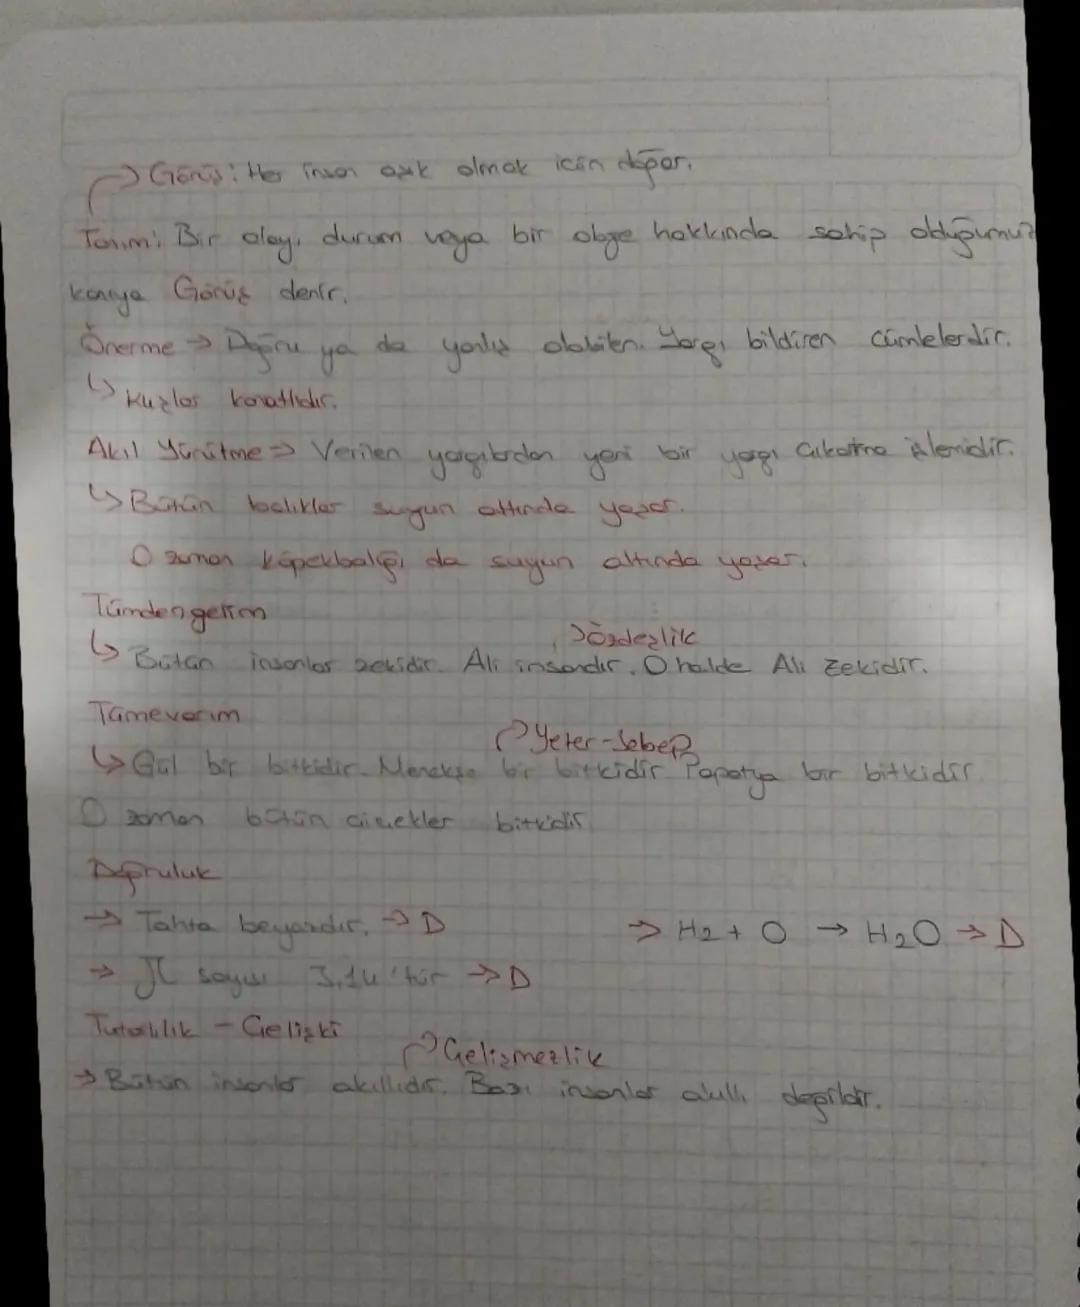 → Görüş: Her insan aşık olmak için doğar.
Tanım: Bir olay, durum veya bir obje hakkında sahip olduğumuz
kanıya Görüş denir.
Önerme → Doğru ya da yanlış olabilen. Yargı bildiren cümlelerdir.
↳ Kuşlar kanatlıdır.
Akıl Yürütme ⇒ Verilen yargılardan yeni bir yargı çıkartma işlemidir.
↳ Bütün balıklar suyun altında yaşar.
O zaman köpekbalığı da suyun altında yaşar.
Tümdengelim
→ Özdeşlik
↳ Bütün insanlar zekidir. Ali insandır. O halde Ali zekidir.
Tümevarım
→ Yeter-Sebep
↳ Gül bir bitkidir. Menekşe bir bitkidir Papatya bir bitkidir.
O zaman bütün çiçekler bitkidir
Doğruluk
→ Tahta beyazdır. → D → H2 + O → H2O → D
→ π sayısı 3,14'tür → D
Tutarlılık - Çelişki
→ Çelişmezlik
→ Bütün insanlar akıllıdır. Bazı insanlar akıllı değildir.